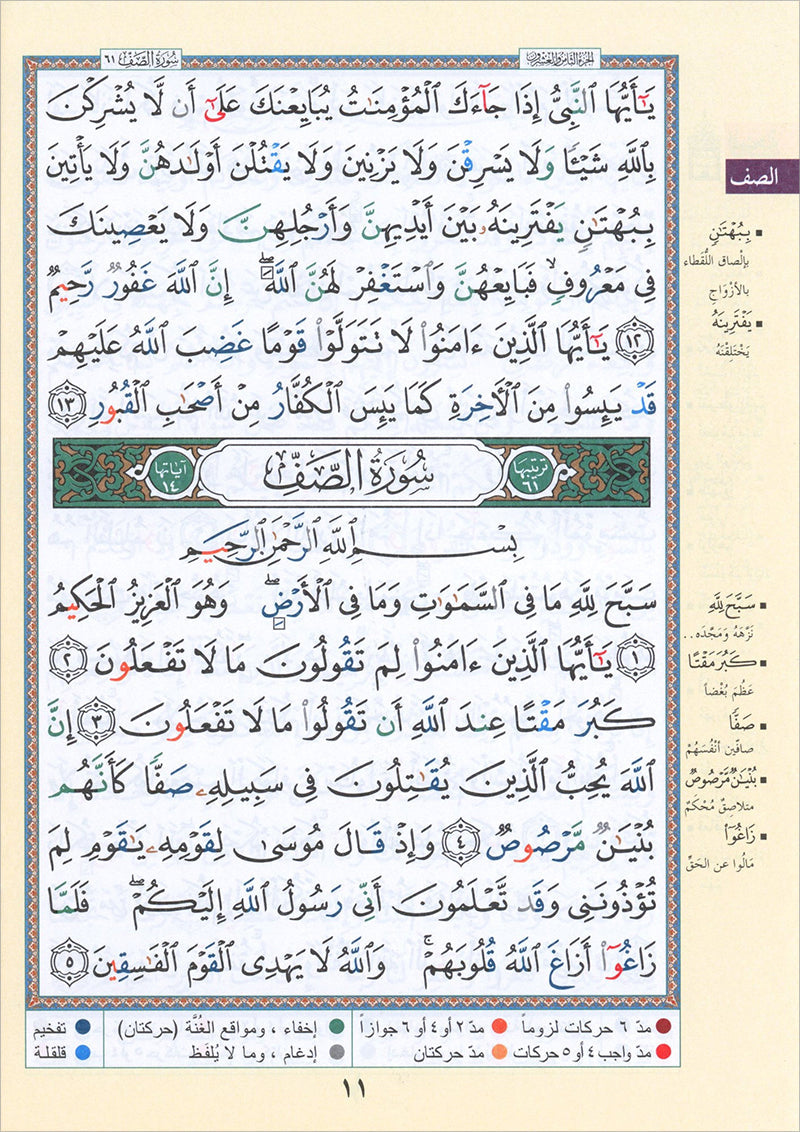 سُورَةُ الصَّفِّ ٦١
الجُزْءُ الثَّامِنُ وَالعِشْرُونَ
يَٰٓأَيُّهَا ٱلنَّبِىُّ إِذَا جَآءَكَ ٱلْمُؤْمِنَٰتُ يُبَايِعْنَكَ عَلَىٰٓ أَن لَّا يُشْرِكْنَ
بِٱللَّهِ شَيْـًٔا وَلَا يَسْرِقْنَ وَلَا يَزْنِينَ وَلَا يَقْتُلْنَ أَوْلَٰدَهُنَّ وَلَا يَأْتِينَ
بِبُهْتَٰنٍ يَفْتَرِينَهُۥ بَيْنَ أَيْدِيهِنَّ وَأَرْجُلِهِنَّ وَلَا يَعْصِينَكَ
فِى مَعْرُوفٍ ۙ فَبَايِعْهُنَّ وَٱسْتَغْفِرْ لَهُنَّ ٱللَّهَ ۖ إِنَّ ٱللَّهَ غَفُورٌ رَّحِيمٌ
١٢ يَٰٓأَيُّهَا ٱلَّذِينَ ءَامَنُوا۟ لَا تَتَوَلَّوْا۟ قَوْمًا غَضِبَ ٱللَّهُ عَلَيْهِمْ
قَدْ يَئِسُوا۟ مِنَ ٱلْءَاخِرَةِ كَمَا يَئِسَ ٱلْكُفَّارُ مِنْ أَصْحَٰبِ ٱلْقُبُورِ ١٣
ترتيبها ٦١ سُورَةُ الصَّفِّ آياتها ١٤
بِسْمِ ٱللَّهِ ٱلرَّحْمَٰنِ ٱلرَّحِيمِ
سَبَّحَ لِلَّهِ مَا فِى ٱلسَّمَٰوَٰتِ وَمَا فِى ٱلْأَرْضِ ۖ وَهُوَ ٱلْعَزِيزُ ٱلْحَكِيمُ
١ يَٰٓأَيُّهَا ٱلَّذِينَ ءَامَنُوا۟ لِمَ تَقُولُونَ مَا لَا تَفْعَلُونَ ٢
كَبُرَ مَقْتًا عِندَ ٱللَّهِ أَن تَقُولُوا۟ مَا لَا تَفْعَلُونَ ٣ إِنَّ
ٱللَّهَ يُحِبُّ ٱلَّذِينَ يُقَٰتِلُونَ فِى سَبِيلِهِۦ صَفًّا كَأَنَّهُم
بُنْيَٰنٌ مَّرْصُوصٌ ٤ وَإِذْ قَالَ مُوسَىٰ لِقَوْمِهِۦ يَٰقَوْمِ لِمَ
تُؤْذُونَنِى وَقَد تَّعْلَمُونَ أَنِّى رَسُولُ ٱللَّهِ إِلَيْكُمْ ۖ فَلَمَّا
زَاغُوٓا۟ أَزَاغَ ٱللَّهُ قُلُوبَهُمْ ۚ وَٱللَّهُ لَا يَهْدِى ٱلْقَوْمَ ٱلْفَٰسِقِينَ ٥
الصف
بِبُهْتَٰنٍ
بإلْصاق اللُّقَطاء
بالأزْوَاجِ
يَفْتَرِينَهُ
يَخْتَلِقْنَهُ
سَبَّحَ لِلَّهِ
نَزَّهَهُ وَمَجَّدَه ..
كَبُرَ مَقْتًا
عَظُمَ بُغْضاً
صَفًّا
صافين أنْفُسَهُمْ
بُنْيَٰنٌ مَّرْصُوصٌ
متلاصِقٌ مُحْكَمٌ
زَاغُوٓا۟
مَالُوا عن الحَقِّ
مدّ ٦ حركات لزوماً
مدّ ٢ أو ٤ أو ٦ جوازاً
إخفاء ، ومواقع الغُنَّة (حركتان)
تفخيم
مدّ واجب ٤ أو ٥ حركات
مدّ حركتان
إدغام ، وما لا يُلفَظ
قلقلة
١١